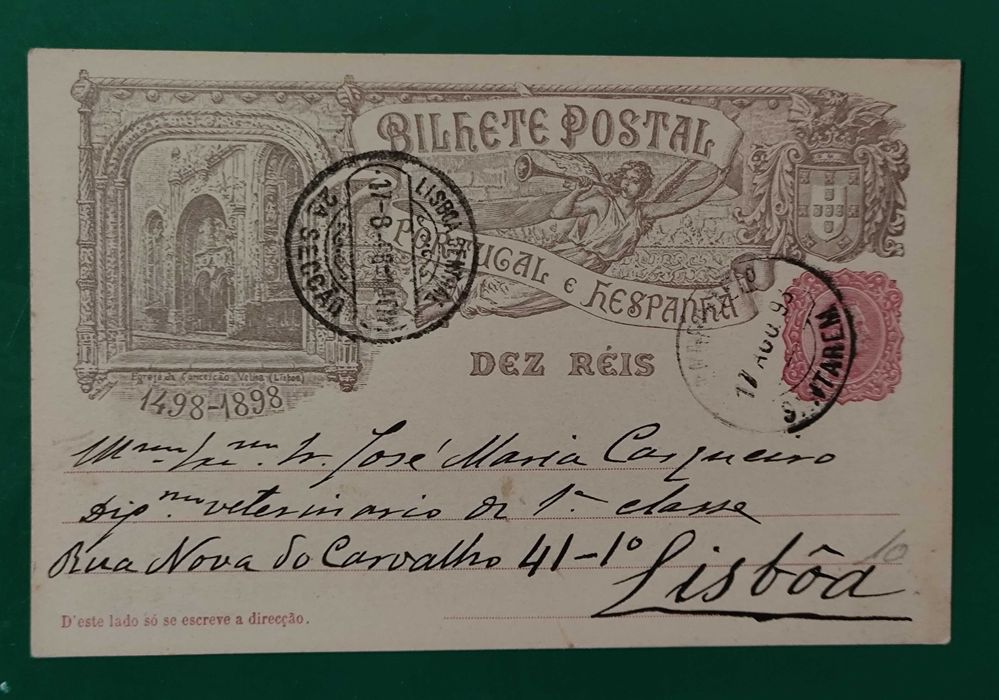 BILHETE POSTAL
PORTUGAL E HESPANHA
DEZ RÉIS
Egreja da Conceição Velha (Lisboa)
1498-1898
LISBOA CENTRAL
2A SECÇÃO
17-8-
17 AGO 98
SANTAREM
Illmo. Exmo. Sr. José Maria Casqueiro
Digmo. veterinario de 1ª classe
Rua Nova do Carvalho 41-1º
Lisbôa
10
D'este lado só se escreve a direcção.